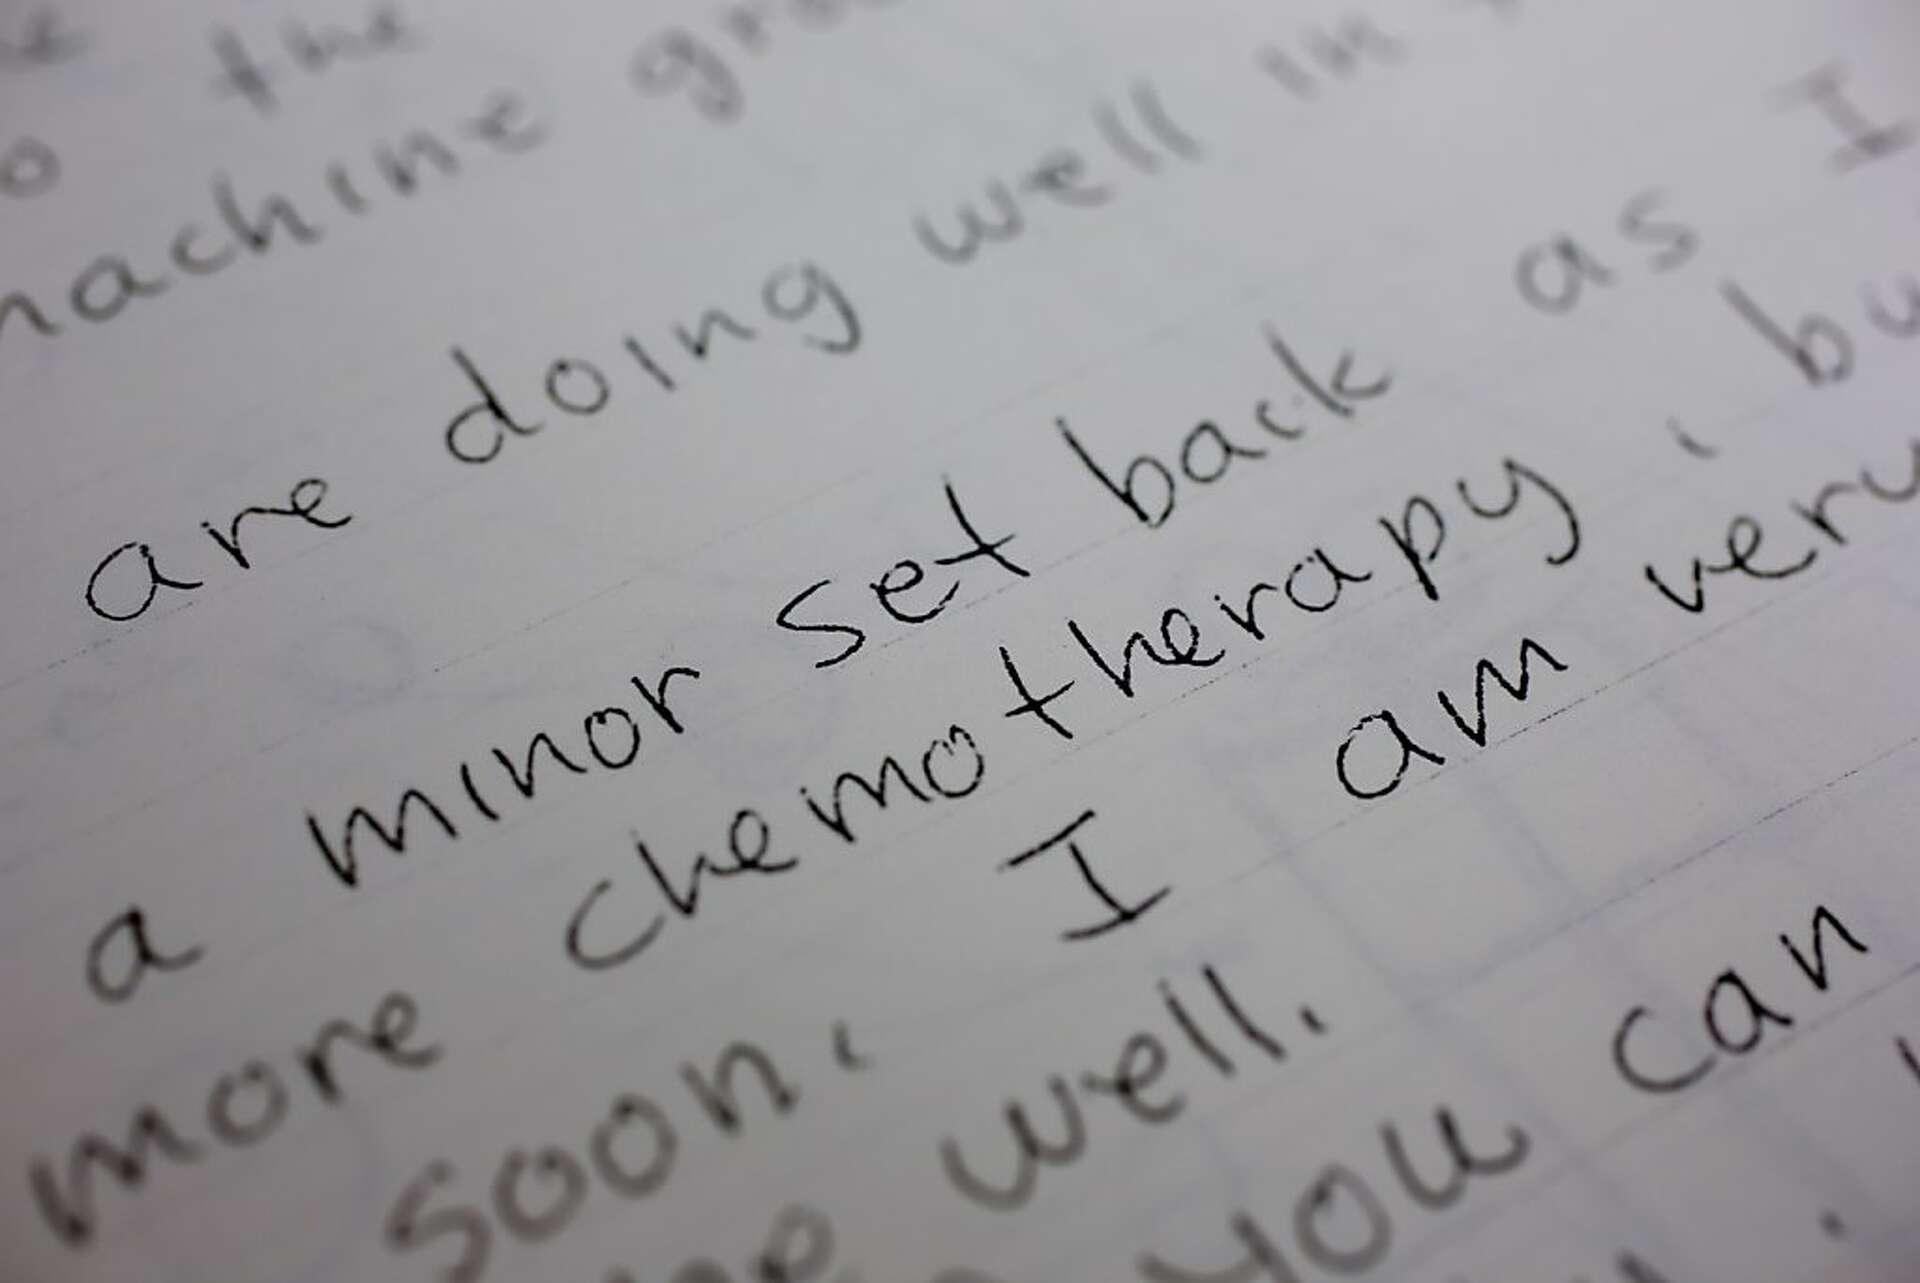 the
machine
are doing well in
a minor set back as I
more chemotherapy, bu
soon. I am very
well.
you can